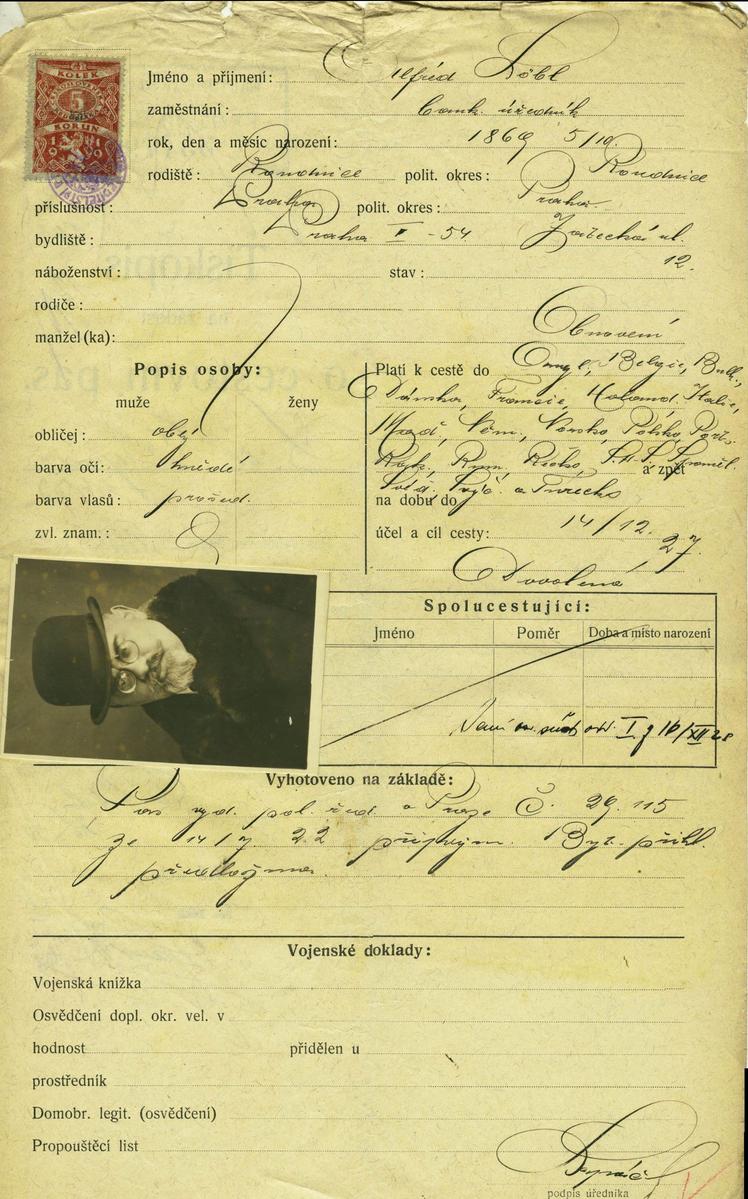 KOLEK
5
KORUN
1919
Jméno a příjmení: Alfréd Löbl
zaměstnání: bank. úředník
rok, den a měsíc narození: 1869 5/10.
rodiště: Roudnice polit. okres: Roudnice
příslušnost: Praha polit. okres: Praha
bydliště: Praha V - 54 Žatecká ul.
12.
náboženství: stav:
rodiče:
manžel (ka): Obnovení
Popis osoby: Platí k cestě do Angl., Belgie, Bulh.,
muže ženy Dánska, Francie, Holand, Italie,
obličej: obý Maď., Něm., Norsko, Polsko, Port.,
barva očí: hnědé Rak., Rum., Řecko, a zpět
barva vlasů: prošed. na dobu do Švéd., Švýc. a Turecko
zvl. znam.: účel a cíl cesty: 14/12. 27.
Dovolená
Spolucestující:
Jméno Poměr Doba a místo narození
I 16/XII 28
Vyhotoveno na základě:
Pas vyd. pol. řed. v Praze Č. 29.115
ze 14/7 22 Byt. přihl.
předložena.
Vojenské doklady:
Vojenská knížka
Osvědčení dopl. okr. vel. v
hodnost přidělen u
prostředník
Domobr. legit. (osvědčení)
Propouštěcí list
podpis úředníka